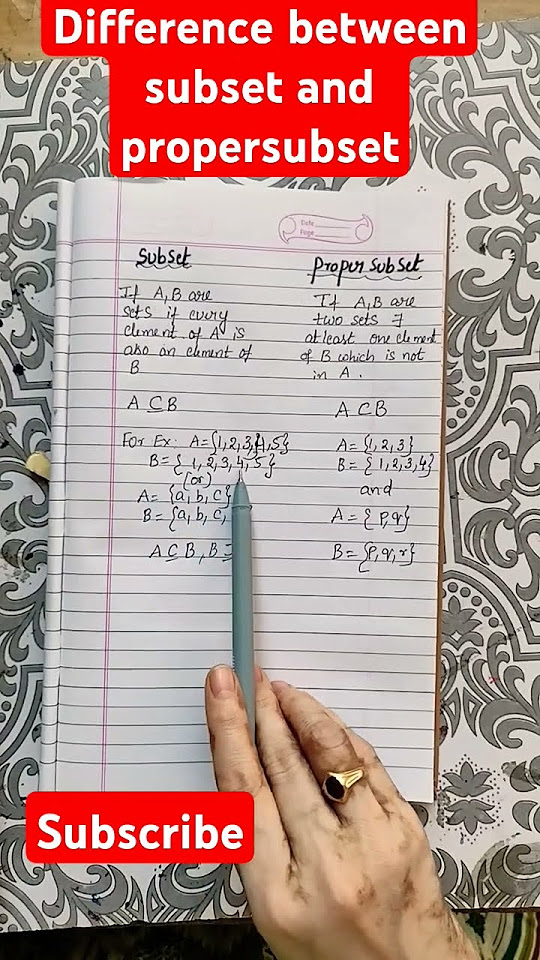 Difference between
subset and
propersubset
Date
Page
Subset
Proper subset
If A, B are
sets if every
element of A is
also an element of
B
A ⊆ B
For Ex: A={1,2,3,4,5}
B={1,2,3,4,5}
(or)
A={a,b,c}
B={a,b,c,
A ⊆ B, B ⊇
If A, B are
two sets ∃
atleast one element
of B which is not
in A.
A ⊂ B
A={1,2,3}
B={1,2,3,4}
and
A={p,q}
B={p,q,r}
Subscribe